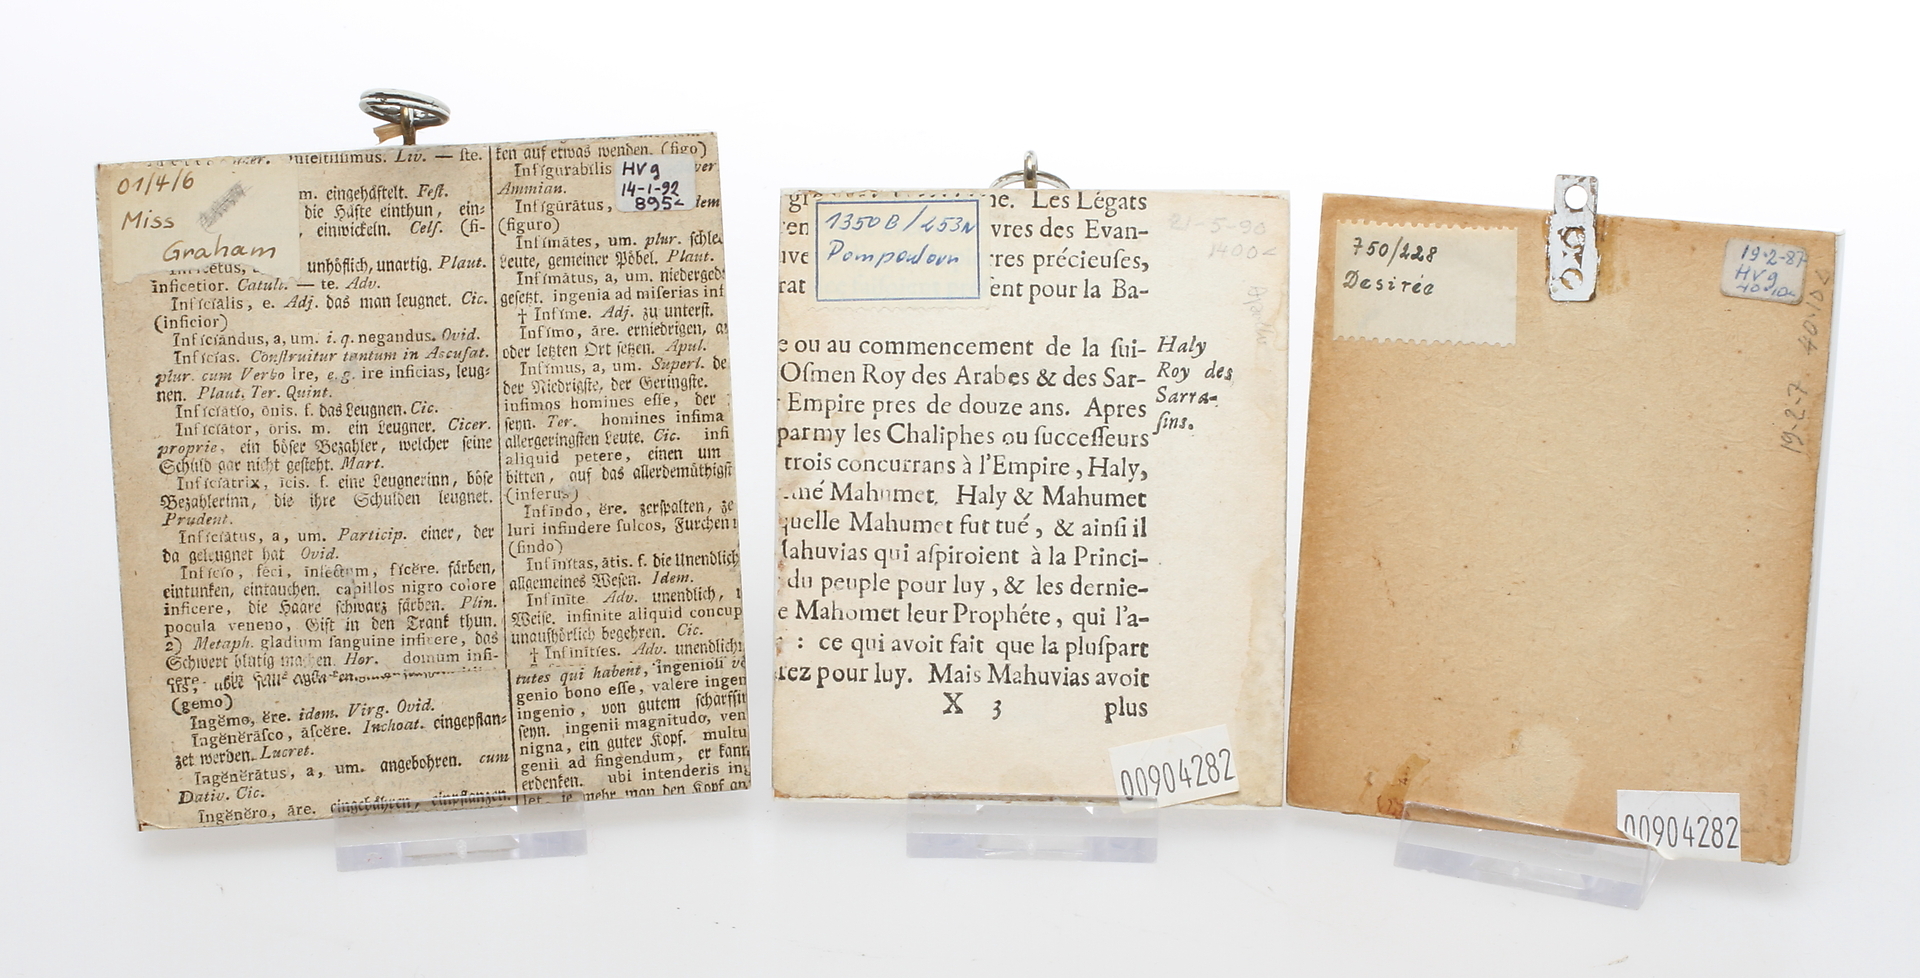 01/4/6
Miss
Graham
HVg
14-1-92
895<
inteltinimus. Liv. — ste.
m. eingehäftelt. Fest.
die Häfte einthun, ein⸗
, einwickeln. Cels. (fi-
unhöflich, unartig. Plaut.
inficetior. Catull. — te. Adv.
Inficiālis, e. Adj. das man leugnet. Cic.
(inficior)
Inficiāndus, a, um. i. q. negandus. Ovid.
Inficias. Construitur tantum in Accusat.
plur. cum Verbo Ire, e. g. ire inficias, leug⸗
nen. Plaut. Ter. Quint.
Inficiātio, ōnis. f. das Leugnen. Cic.
Inficiātor, ōris. m. ein Leugner. Cicer.
proprie, ein böser Bezahler, welcher seine
Schuld gar nicht gesteht. Mart.
Inficiātrix, īcis. f. eine Leugnerinn, böse
Bezahlerinn, die ihre Schulden leugnet.
Prudent.
Inficiātus, a, um. Particip. einer, der
da geleugnet hat Ovid.
Inficio, fēci, infectum, ficĕre. färben,
eintunken, eintauchen. capillos nigro colore
inficere, die Haare schwarz färben. Plin.
pocula veneno, Gift in den Trank thun.
2) Metaph. gladium sanguine inficere, das
Schwert blutig machen. Hor. domum infi-
cere
(gemo)
Ingĕmo, ĕre. idem. Virg. Ovid.
Ingĕnĕrāsco, āscĕre. Inchoat. eingepflan⸗
zet werden. Lucret.
Ingĕnĕrātus, a, um. angebohren. cum
Dativ. Cic.
Ingĕnĕro, āre. eingebähren, einpflanzen.
ken auf etwas wenden. (figo)
Infigurabilis
Ammian.
Infigūrātus,
(figuro)
Infimātes, um. plur. schle
Leute, gemeiner Pöbel. Plaut.
Infimātus, a, um. niederged
gesetzt. ingenia ad miserias inf
† Infime. Adj. zu unterst.
Infimo, āre. erniedrigen, a
oder letzten Ort setzen. Apul.
Infimus, a, um. Superl. de
der Niedrigste, der Geringste.
infimos homines esse, der
seyn. Ter. homines infima
allergeringsten Leute. Cic. infi
aliquid petere, einen um
bitten, auf das allerdemüthigst
(inferus)
Infindo, ĕre. zerspalten, ze
luri infindere sulcos, Furchen
(findo)
Infinitas, ātis. f. die Unendlich
allgemeines Wesen. Idem.
Infinite Adv. unendlich,
Weise. infinite aliquid concup
unaufhörlich begehren. Cic.
† Infinities. Adv. unendlich
tutes qui habent, ingenioli
genio bono esse, valere ingen
ingenio, von gutem scharfsin
seyn. ingenii magnitudo, ven
nigna, ein guter Kopf. multu
genii ad fingendum, er kann
erdenken. ubi intenderis ing
1350 B/253n
Pompadour
21-5-90
1400<
ne. Les Légats
vres des Evan-
rres précieuſes,
ent pour la Ba-
e ou au commencement de la ſui-
Oſmen Roy des Arabes & des Sar-
Empire pres de douze ans. Apres
parmy les Chaliphes ou ſucceſſeurs
trois concurrans à l'Empire, Haly,
mé Mahumet. Haly & Mahumet
quelle Mahumet fut tué, & ainſi il
Mahuvias qui aſpiroient à la Princi-
du peuple pour luy, & les dernie-
e Mahomet leur Prophéte, qui l'a-
: ce qui avoit fait que la pluſpart
rez pour luy. Mais Mahuvias avoit
X 3 plus
Haly
Roy des
Sarra-
ſins.
00904282
750/228
Desirée
19-2-87
HVg
40-10<
19-2-7. 40.10<
00904282